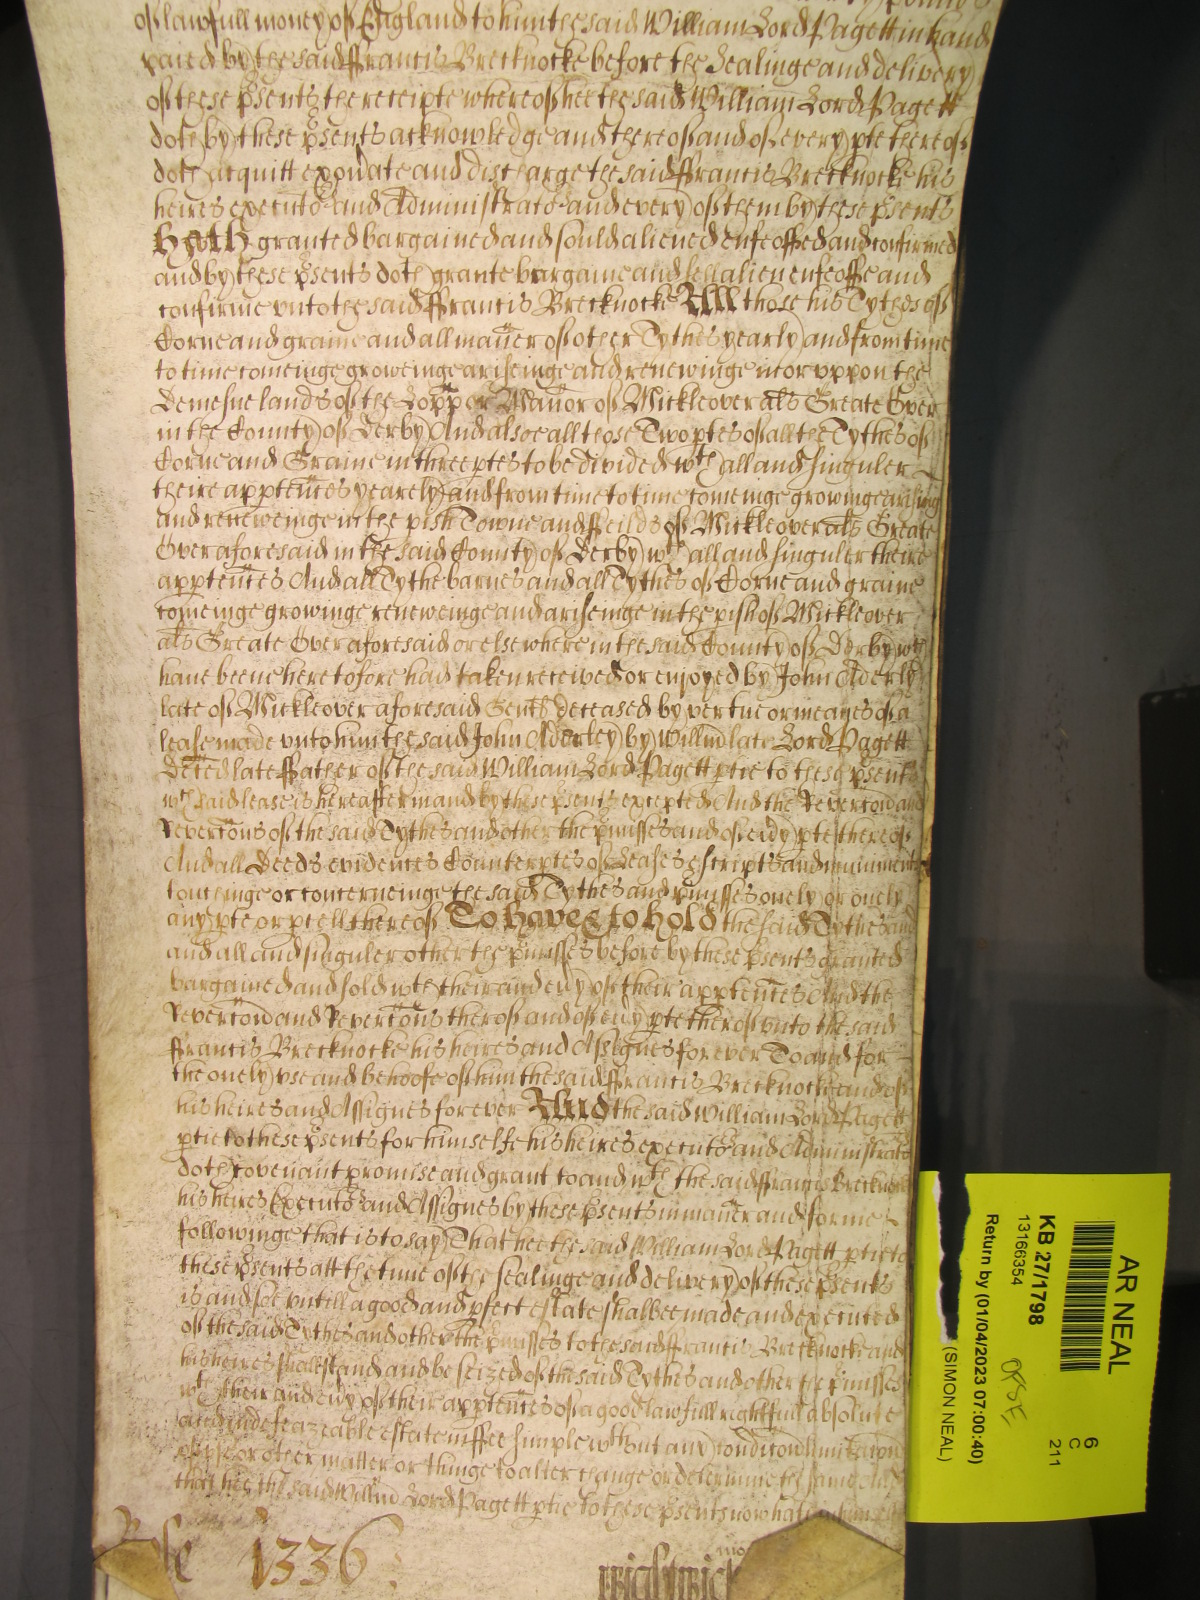 of lawfull money of England to him the said William Lord Pagett in hand
paied by the said ffrancis Brecknocke before the Sealinge and delivery
of these p̃sents the receipte whereof hee the said William Lord Pagett
doth by these p̃sents acknowledge and thereof and of every pte thereof
doth acquitt exoñate and discharge the said ffrancis Brecknocke his
heires executors and Administrators and every of them by these p̃sents
Hath granted bargained and sould aliened enfeoffed and confirmed
and by these p̃sents doth grante bargaine and sell alien enfeoffe and
confirme vnto the said ffrancis Brecknocke All those his Tythes of
Corne and graine and all mañer of other Tythes yearly and from time
to time comeinge groweinge ariseinge and renewinge in or vppon the
Demesne lands of the Lopp or Mañor of Mickleover als Greate Over
in the County of Derby And alsoe all those Two ptes of all the Tythes of
Corne and Graine in three ptes to be divided wth all and singuler
theire appteñces yearely and from time to time comeinge growinge ariseing
and reneweinge in the pish Towne and ffeilds of Mickleover als Greate
Over aforesaid in the said County of Derby wth all and singuler theire
appteñces And all Tythe barnes and all Tythes of Corne and graine
comeinge growinge reneweinge and ariseinge in the pish of Mickleover
als Greate Over aforesaid or elsewhere in the said County of Derby wch
have beene heretofore had taken received or enjoyed by John Alderly
late of Mickleover aforesaid Gent deceased by vertue or meanes of a
lease made vnto him the said John Alderley by Willm̃ late Lord Pagett
deceẽd late ffather of the said William Lord Pagett ptie to these p̃sents
wch said lease is hereafter in and by these p̃sents excepted And the Reverc̃on and
Reverc̃ons of the said Tythes and other the p̃misses and of eṽy pte thereof
And all Deeds evidences Counterptes of Leases escripts and muniments
touchinge or concerneinge the said Tythes and p̃misses onely or onely
any pte or pcell thereof To have & to hold the said Tythes and
and all and singuler other the p̃misses before by these p̃sents granted
bargained and sold wth their and eṽy of their appteñces And the
Reverc̃on and Reverc̃ons therof and of eṽy pte therof vnto the said
ffrancis Brecknocke his heires and Assignes for ever To and for
the onely vse and behoofe of him the said ffrancis Brecknocke and of
his heires and Assignes for ever And the said William Lord Pagett
ptie to these p̃sents for himselfe his heires executors and Administrators
doth covenant promise and grant to and wth the said ffrancis Brecknocke
his heires Executors and Assignes by these p̃sents in mañer and forme
followinge that is to say That hee the said William Lord Pagett ptie to
these p̃sents att the time of the sealinge and delivery of these p̃sents
is and soe vntill a good and pfect estate shalbee made and executed
of the said Tythes and other the p̃misses to the said ffrancis Brecknocke and
his heires shall stand and be seized of the said Tythes and other the p̃misses
wth their and eṽy of their apptences of a good lawfull rightfull absolute
and indefeazeable estate in ffee simple wthout any condic̃on limitac̃on
of vse or other matter or thinge to alter change or determine the same And
that hee the said Willm̃ Lord Pagett ptie to these p̃sents now hath
1336
AR NEAL
6
C
211
KB 27/1798
13166354
Return by (01/04/2023 07:00:40)
(SIMON NEAL)